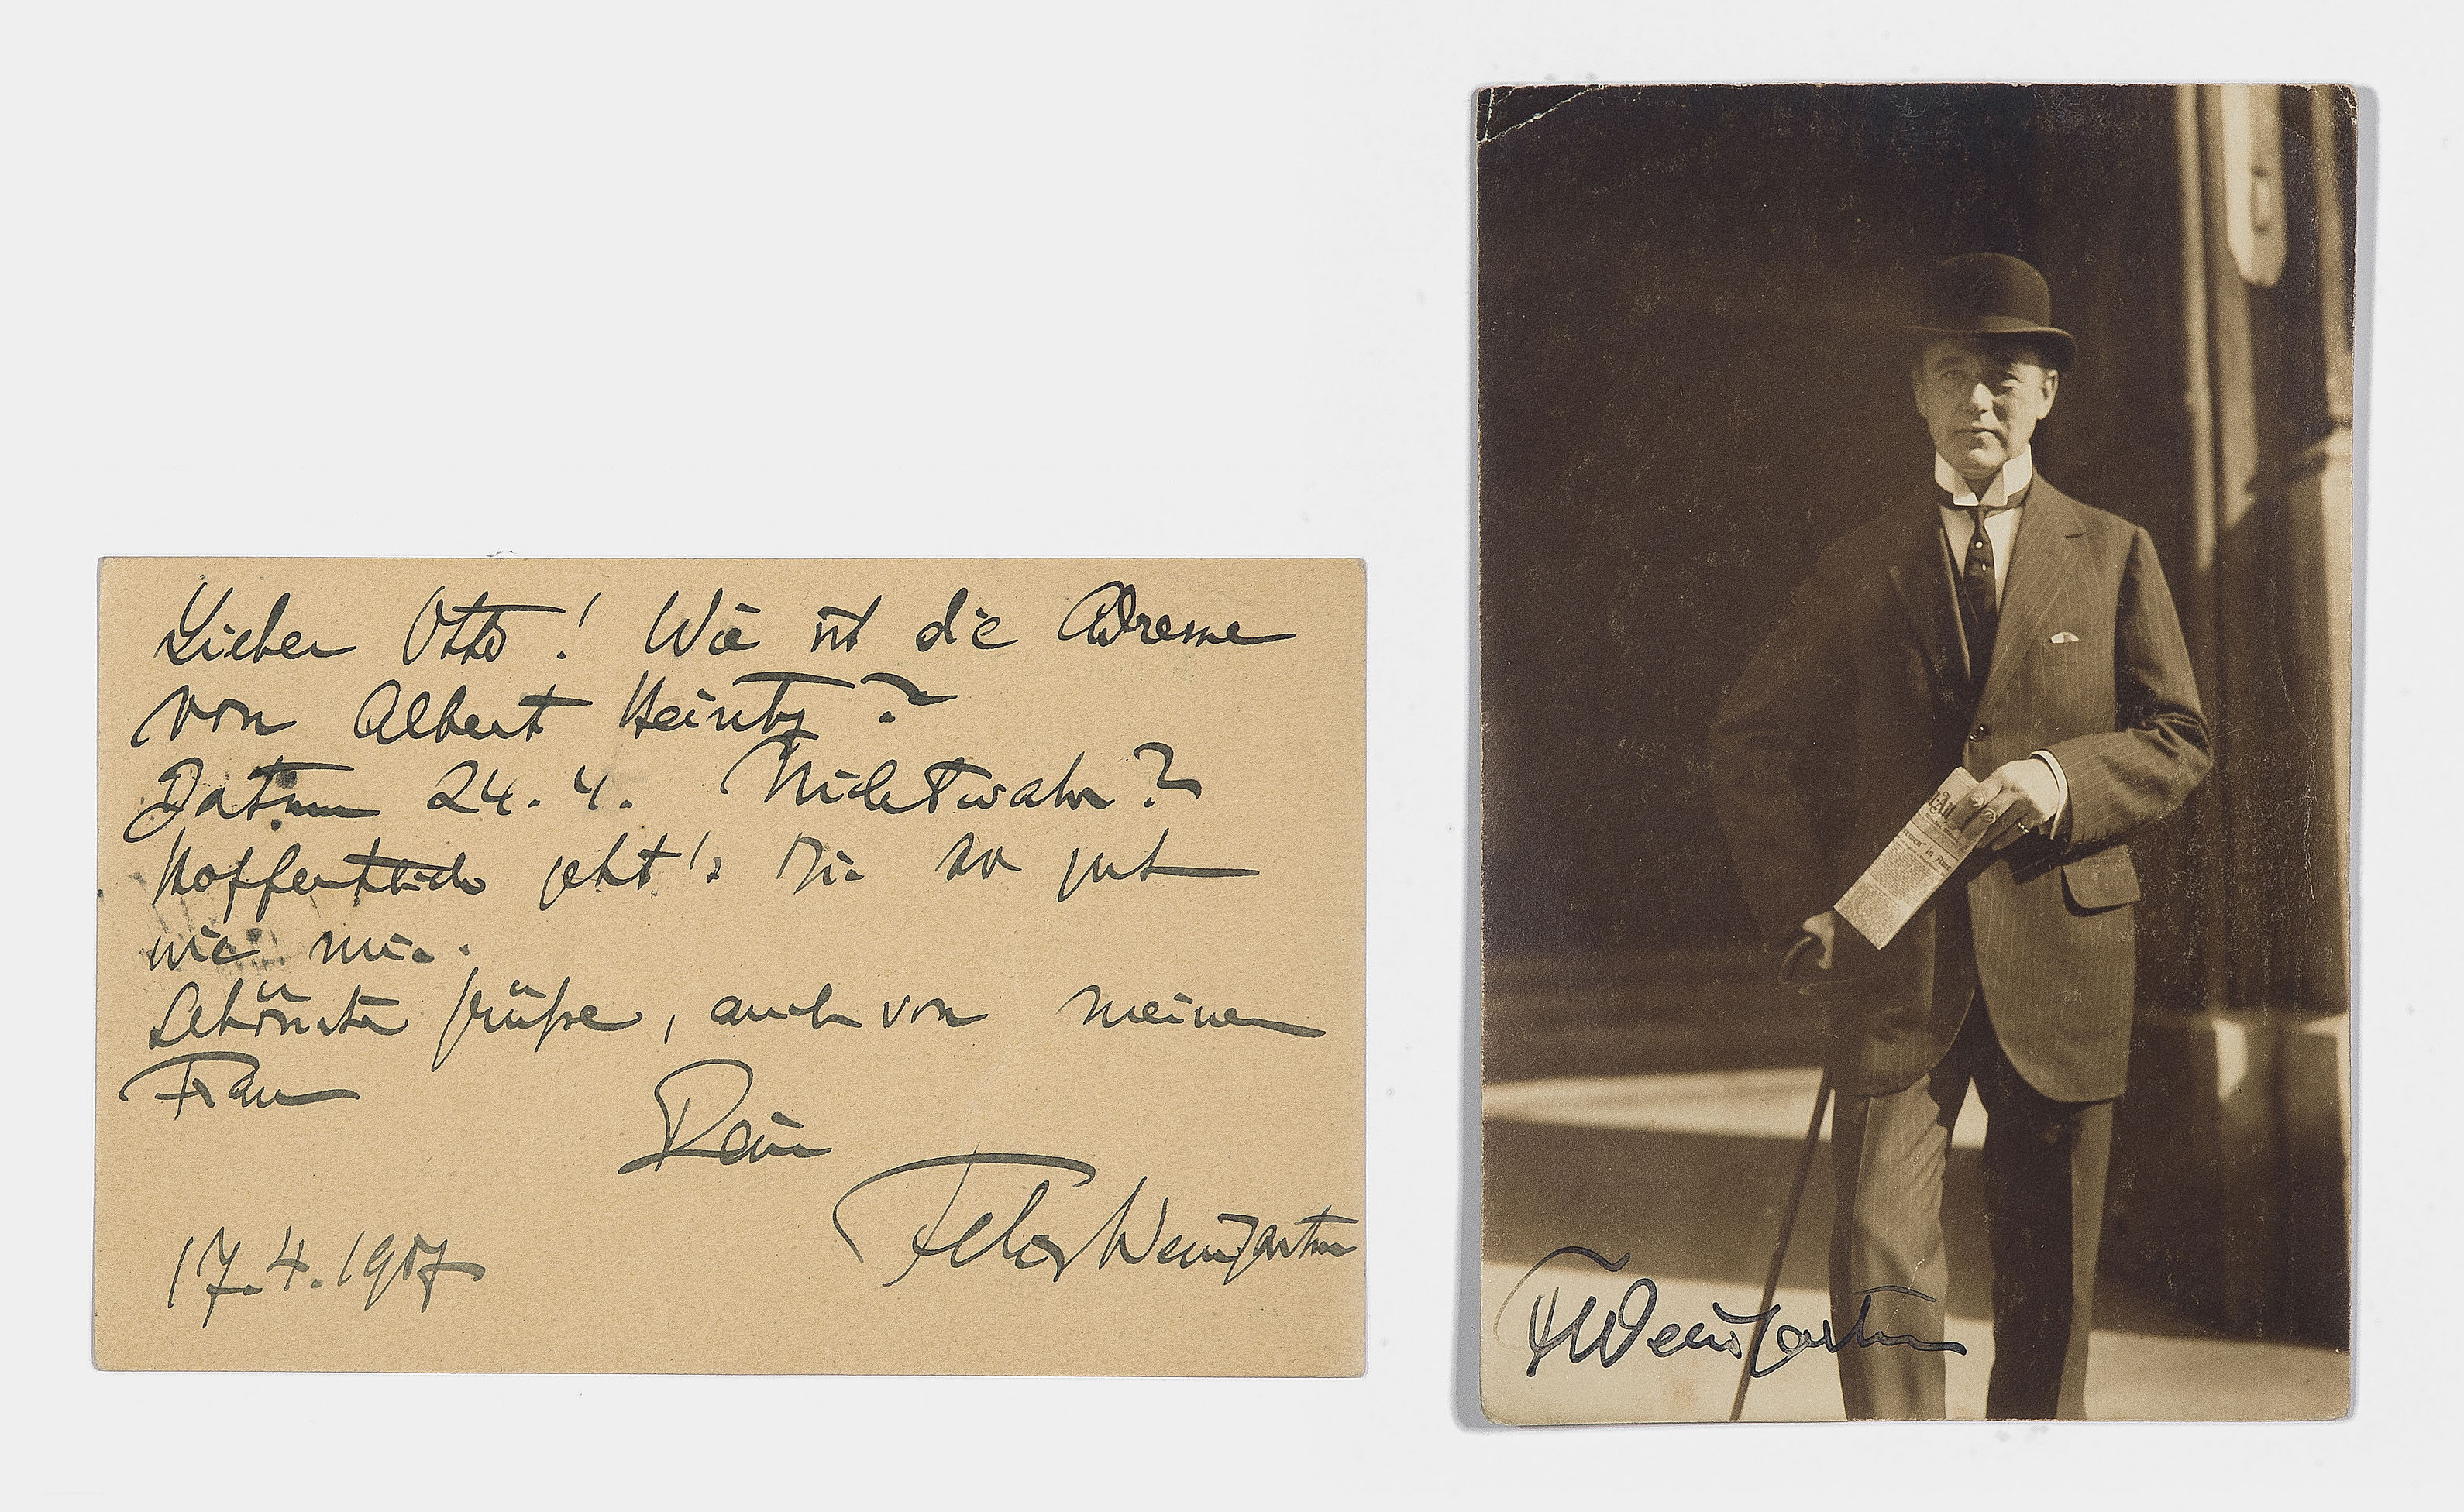 Lieber Otto! Wie ist die Adresse
von Albert Heintz?
Datum 24.4. Nichtwahr?
Hoffentlich geht's Dir so gut
wie mir.
Schönste Grüße, auch von meiner
Frau
Dein
Felix Weingartner
17.4.1907
FWeingartner
in Ame